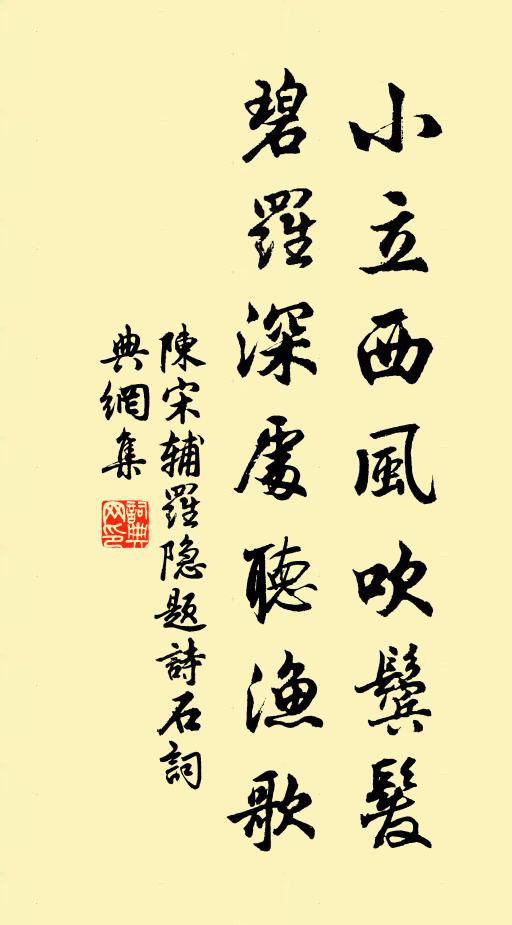 小立西風吹鬢髮
碧羅深處聽漁歌
陳宋輔羅隐题詩石詞
典網集
詞典
网印